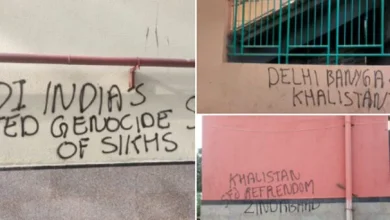 DI INDIA'S
TED GENOCIDE S
OF SIKHS
DELHI BANYGA
KHALISTAN
KHALISTAN
REFRENDOM
ZINDABAAD